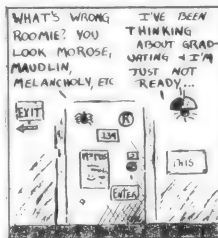 WHAT'S WRONG
ROOMIE? YOU
LOOK MOROSE,
MAUDLIN,
MELANCHOLY, ETC
I'VE BEEN
THINKING
ABOUT GRAD-
UATING & I'M
JUST NOT
READY...
EXIT
R
ENTER